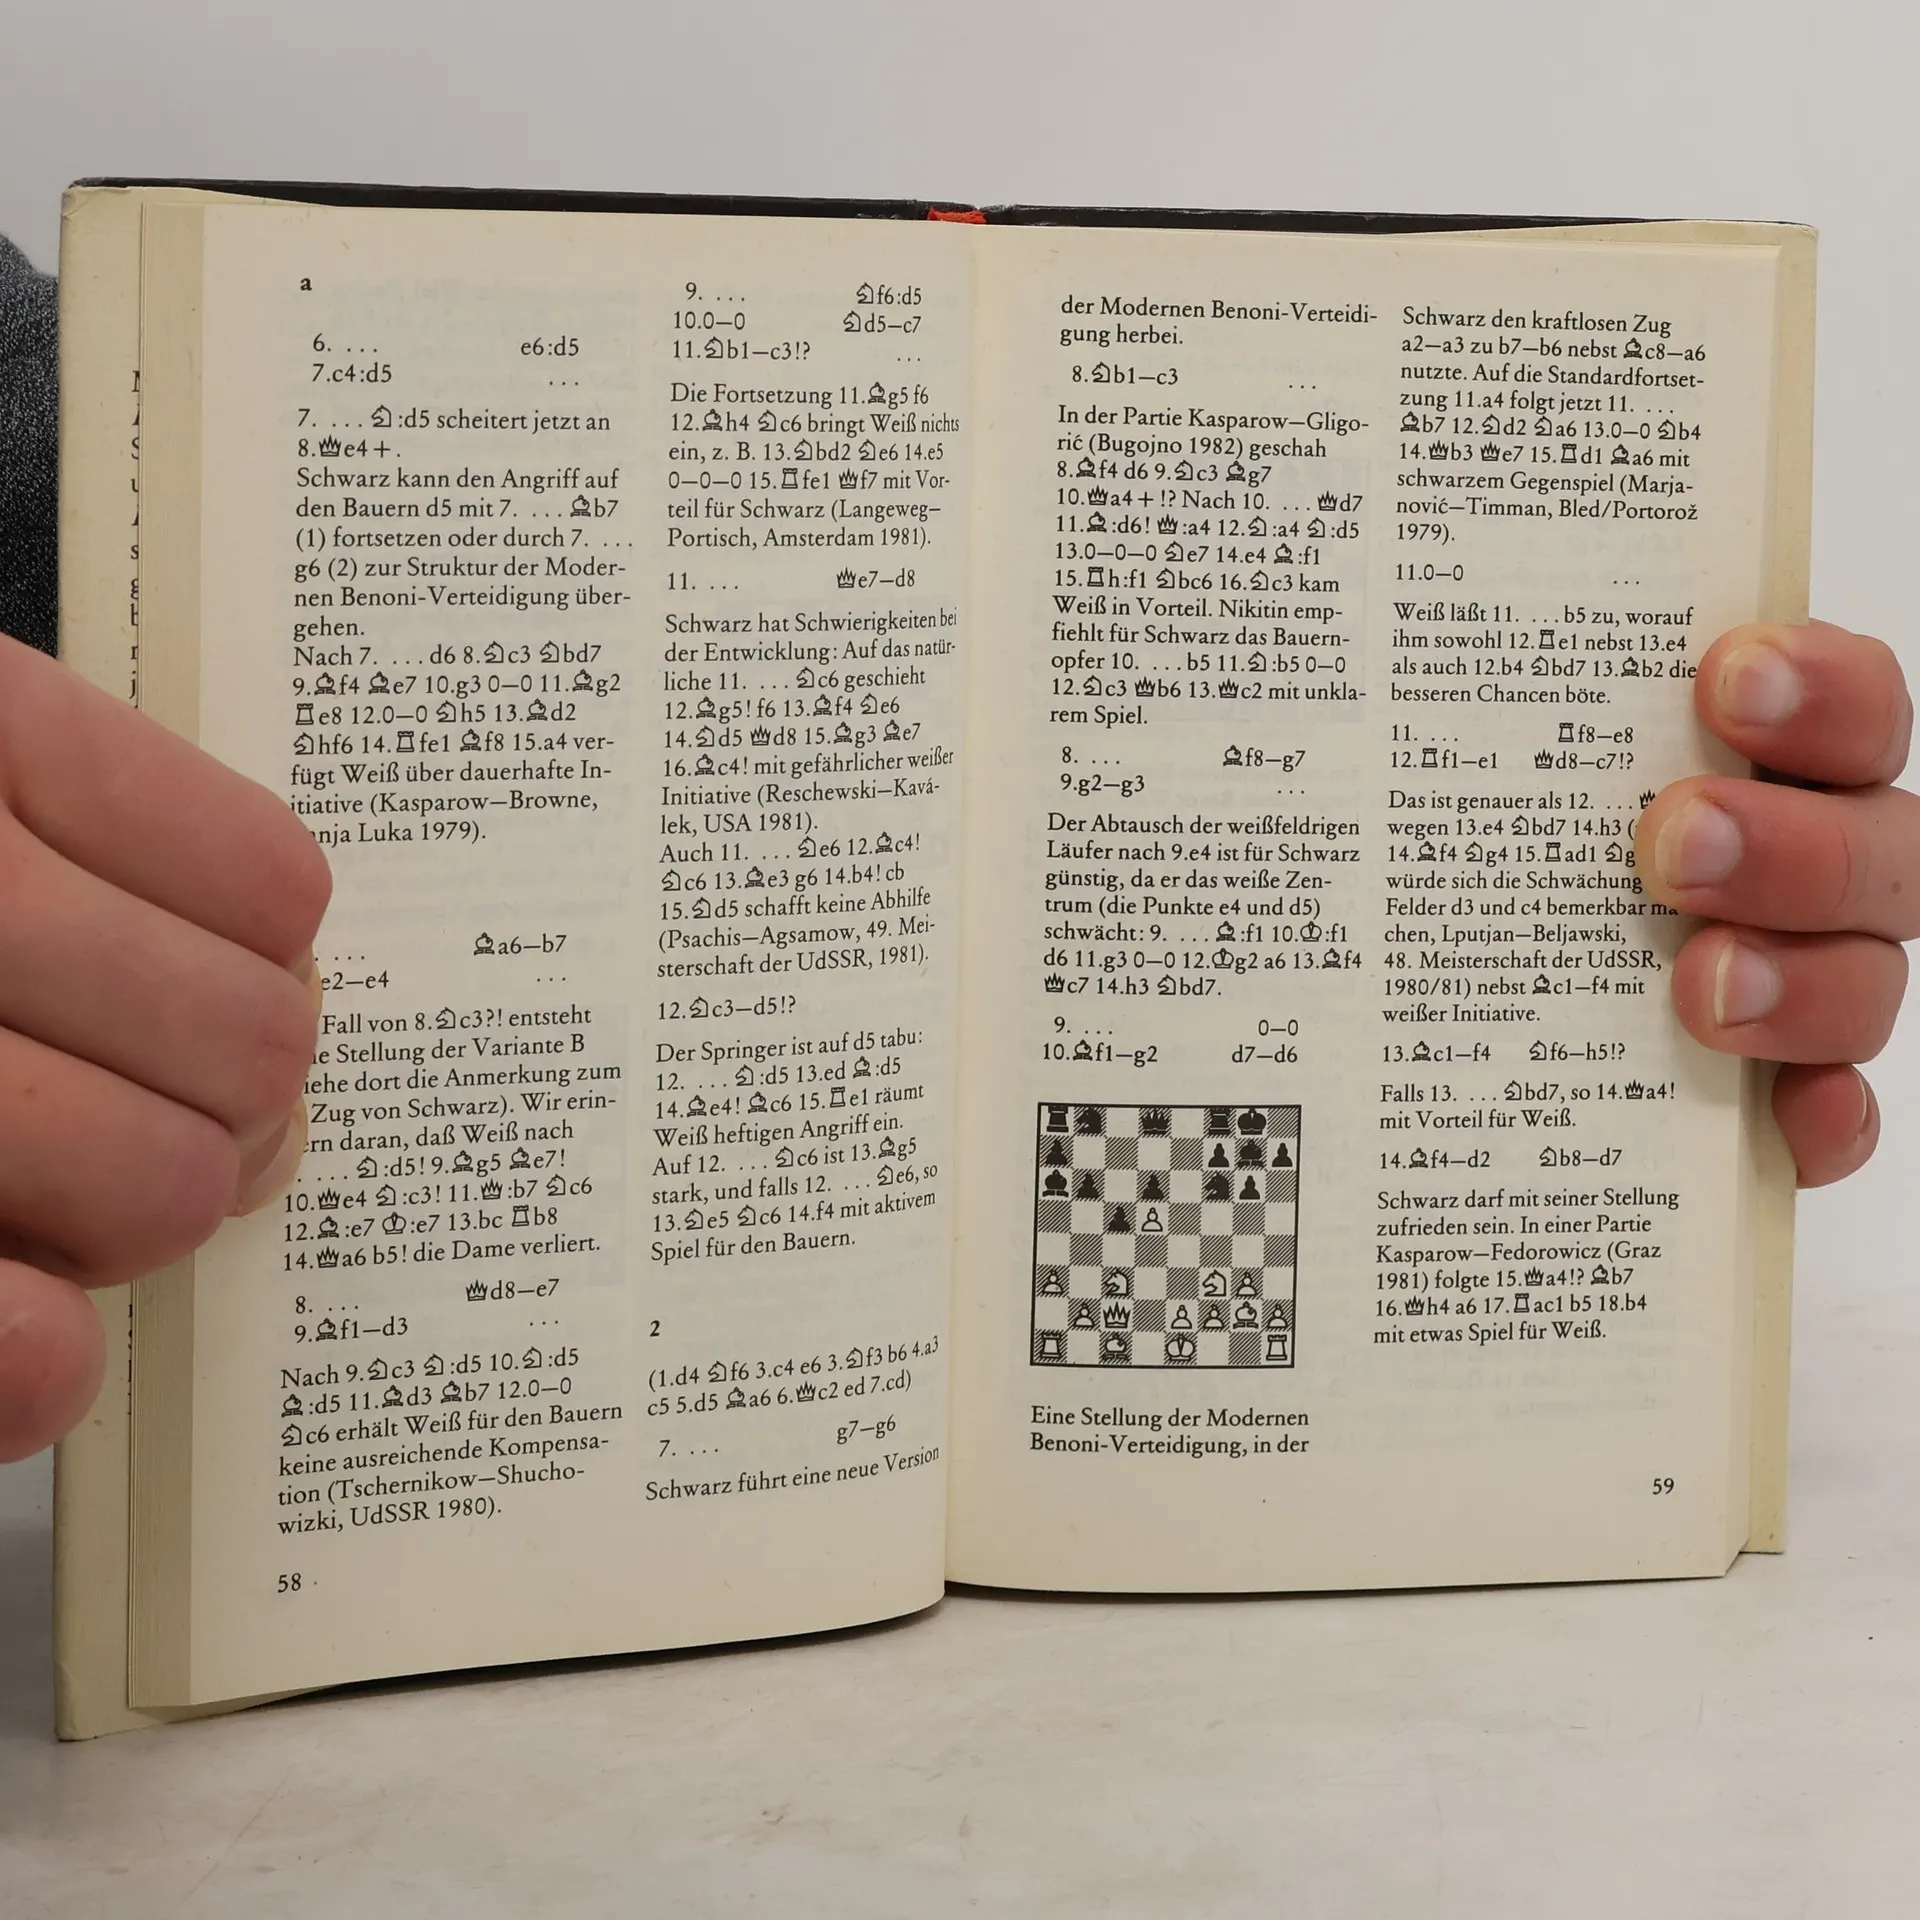 a
6. .... e6:d5
7.c4:d5 ...
7. ....♘:d5 scheitert jetzt an
8.♕e4+.
Schwarz kann den Angriff auf
den Bauern d5 mit 7. ....♗b7
(1) fortsetzen oder durch 7. ....
g6 (2) zur Struktur der Moder-
nen Benoni-Verteidigung über-
gehen.
Nach 7. ....d6 8.♘c3 ♘bd7
9.♗f4 ♗e7 10.g3 0–0 11.♗g2
♖e8 12.0–0 ♘h5 13.♗d2
♘hf6 14.♖fe1 ♗f8 15.a4 ver-
fügt Weiß über dauerhafte In-
itiative (Kasparow–Browne,
nja Luka 1979).
.... ♗a6–b7
e2–e4 ...
Fall von 8.♘c3?! entsteht
Stellung der Variante B
iehe dort die Anmerkung zum
Zug von Schwarz). Wir erin-
ern daran, daß Weiß nach
....♘:d5! 9.♗g5 ♗e7!
10.♕e4 ♘:c3! 11.♕:b7 ♘c6
12.♗:e7 ♔:e7 13.bc ♖b8
14.♕a6 b5! die Dame verliert.
8. .... ♕d8–e7
9.♗f1–d3 ...
Nach 9.♘c3 ♘:d5 10.♘:d5
♗:d5 11.♗d3 ♗b7 12.0–0
♘c6 erhält Weiß für den Bauern
keine ausreichende Kompensa-
tion (Tschernikow–Shucho-
wizki, UdSSR 1980).
58
9. .... ♘f6:d5
10.0–0 ♘d5–c7
11.♘b1–c3!? ...
Die Fortsetzung 11.♗g5 f6
12.♗h4 ♘c6 bringt Weiß nichts
ein, z. B. 13.♘bd2 ♘e6 14.e5
0–0–0 15.♖fe1 ♕f7 mit Vor-
teil für Schwarz (Langeweg–
Portisch, Amsterdam 1981).
11. .... ♕e7–d8
Schwarz hat Schwierigkeiten bei
der Entwicklung: Auf das natür-
liche 11. ....♘c6 geschieht
12.♗g5! f6 13.♗f4 ♘e6
14.♘d5 ♕d8 15.♗g3 ♗e7
16.♗c4! mit gefährlicher weißer
Initiative (Reschewski–Kavá-
lek, USA 1981).
Auch 11. ....♘e6 12.♗c4!
♘c6 13.♗e3 g6 14.b4! cb
15.♘d5 schafft keine Abhilfe
(Psachis–Agsamow, 49. Mei-
sterschaft der UdSSR, 1981).
12.♘c3–d5!?
Der Springer ist auf d5 tabu:
12. ....♘:d5 13.ed ♗:d5
14.♗e4! ♗c6 15.♖e1 räumt
Weiß heftigen Angriff ein.
Auf 12. ....♘c6 ist 13.♗g5
stark, und falls 12. ....♘e6, so
13.♘e5 ♘c6 14.f4 mit aktivem
Spiel für den Bauern.
2
(1.d4 ♘f6 3.c4 e6 3.♘f3 b6 4.a3
c5 5.d5 ♗a6 6.♕c2 ed 7.cd)
7. .... g7–g6
Schwarz führt eine neue Version
der Modernen Benoni-Verteidi-
gung herbei.
8.♘b1–c3 ...
In der Partie Kasparow–Gligo-
rić (Bugojno 1982) geschah
8.♗f4 d6 9.♘c3 ♗g7
10.♕a4+!? Nach 10. ....♕d7
11.♗:d6! ♕:a4 12.♘:a4 ♘:d5
13.0–0–0 ♘e7 14.e4 ♗:f1
15.♖h:f1 ♘bc6 16.♘c3 kam
Weiß in Vorteil. Nikitin emp-
fiehlt für Schwarz das Bauern-
opfer 10. ....b5 11.♘:b5 0–0
12.♘c3 ♕b6 13.♕c2 mit unkla-
rem Spiel.
8. .... ♗f8–g7
9.g2–g3 ...
Der Abtausch der weißfeldrigen
Läufer nach 9.e4 ist für Schwarz
günstig, da er das weiße Zen-
trum (die Punkte e4 und d5)
schwächt: 9. ....♗:f1 10.♔:f1
d6 11.g3 0–0 12.♔g2 a6 13.♗f4
♕c7 14.h3 ♘bd7.
9. .... 0–0
10.♗f1–g2 d7–d6
Eine Stellung der Modernen
Benoni-Verteidigung, in der
Schwarz den kraftlosen Zug
a2–a3 zu b7–b6 nebst ♗c8–a6
nutzte. Auf die Standardfortset-
zung 11.a4 folgt jetzt 11. ....
♗b7 12.♘d2 ♘a6 13.0–0 ♘b4
14.♕b3 ♕e7 15.♖d1 ♗a6 mit
schwarzem Gegenspiel (Marja-
nović–Timman, Bled/Portorož
1979).
11.0–0 ...
Weiß läßt 11. ....b5 zu, worauf
ihm sowohl 12.♖e1 nebst 13.e4
als auch 12.b4 ♘bd7 13.♗b2 die
besseren Chancen böte.
11. .... ♖f8–e8
12.♖f1–e1 ♕d8–c7!?
Das ist genauer als 12. ....
wegen 13.e4 ♘bd7 14.h3 (
14.♗f4 ♘g4 15.♖ad1 ♘g
würde sich die Schwächung
Felder d3 und c4 bemerkbar ma
chen, Lputjan–Beljawski,
48. Meisterschaft der UdSSR,
1980/81) nebst ♗c1–f4 mit
weißer Initiative.
13.♗c1–f4 ♘f6–h5!?
Falls 13. ....♘bd7, so 14.♕a4!
mit Vorteil für Weiß.
14.♗f4–d2 ♘b8–d7
Schwarz darf mit seiner Stellung
zufrieden sein. In einer Partie
Kasparow–Fedorowicz (Graz
1981) folgte 15.♕a4!? ♗b7
16.♕h4 a6 17.♖ac1 b5 18.b4
mit etwas Spiel für Weiß.
59